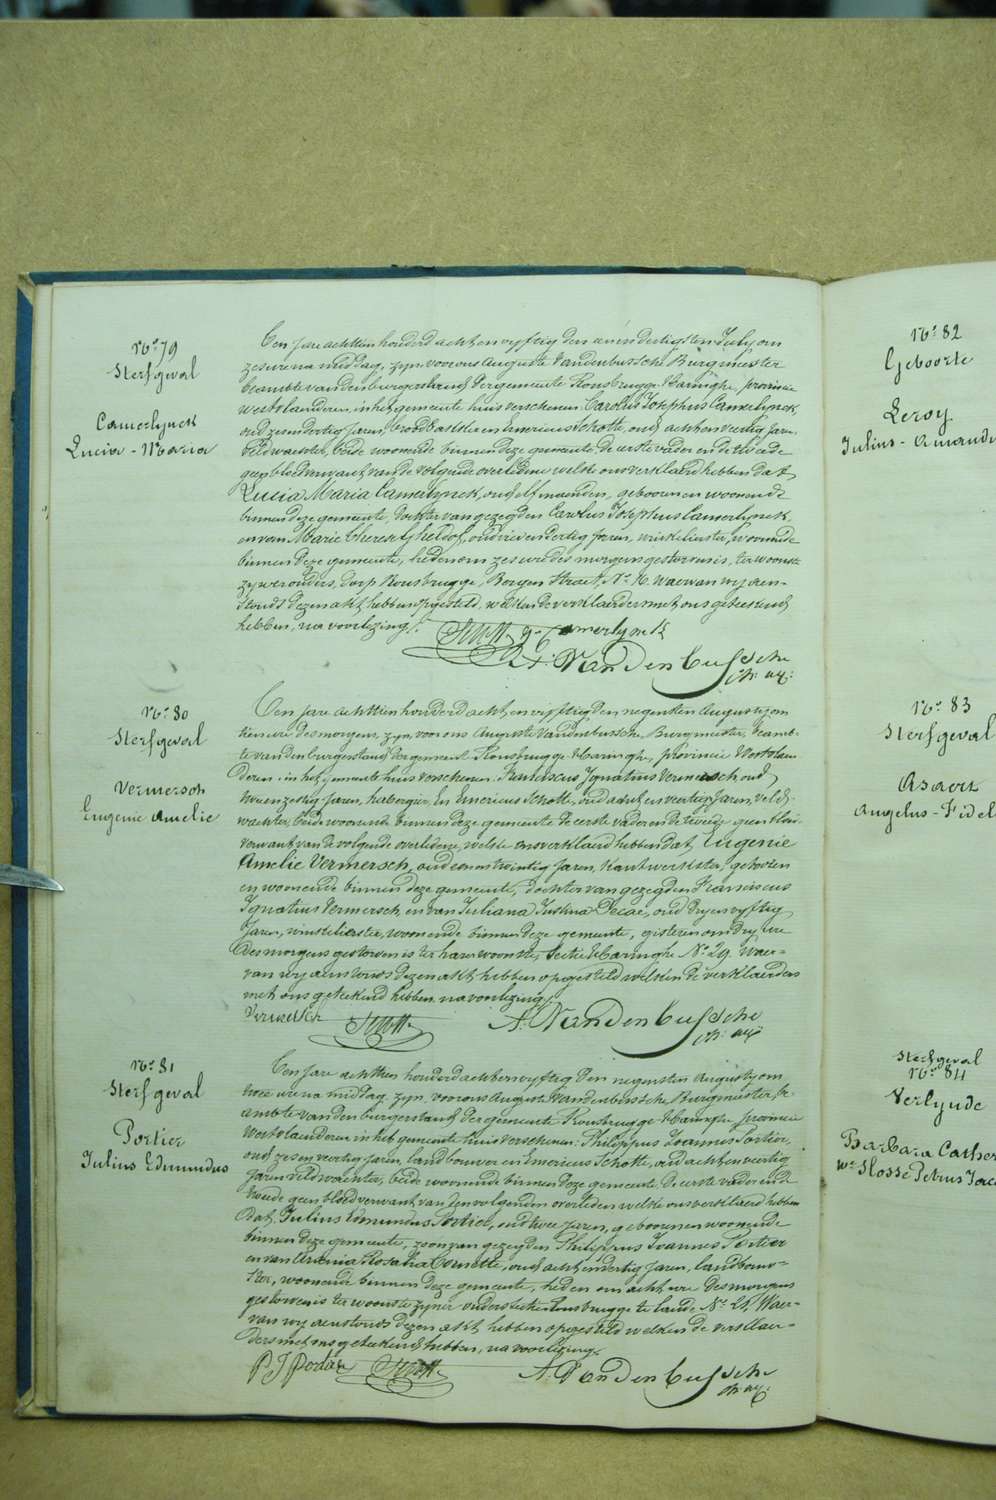 No. 79
Sterfgeval
Camerlynck
Lucia-Maria
Een jare achttien honderd acht en vyftig den eenendertigsten July om
zes ure na middag, zyn voor ons Auguste Vandenbussche Burgmeester
beambte van den burgerstand der gemeente Rousbrugge-Haringhe, provincie
Westvlaanderen, in het gemeente huis verschenen Carolus Josephus Camerlynck,
oud zesendertig jaren, en Emericus Schotte, oud achtenveertig jaren,
veldwachter, beide woonende binnen deze gemeente de eerste vader en de tweede
geen bloedverwant van de volgende overledene welke ons verklaard hebben dat
Lucia Maria Camerlynck, oud elf maenden, geboren en woonende
binnen deze gemeente, dochter van gezegden Carolus Josephus Camerlynck,
en van Marie Therese Gheldof, oud drie en dertig jaren, winkelierster, woonende
binnen deze gemeente, heden om zes ure des morgens gestorven is, ter woonste
zyner ouders, dorp Rousbrugge, Bergen Straet, No. 16. Waervan wy aen-
stonds dezen akt hebben opgesteld, welken de verklaerders met ons geteekend
hebben, na voorlezing.
Schotte Camerlynck
A. Vandenbussche
No. 80
Sterfgeval
Vermersch
Eugenie Amelie
Een jare achttien honderd acht en vyftig, den negensten Augusty om
tien ure des morgens, zyn, voor ons Auguste Vandenbussche, Burgmeester, beamb-
te van den burgerstand der gemeente Rousbrugge-Haringhe, provincie Westvlaen-
deren, in het gemeente huis verschenen Franciscus Ignatius Vermersch, oud
zestig jaren, herbergier, en Emericus Schotte, oud acht en veertig jaren, veld-
wachter, beide woonende binnen deze gemeente de eerste vader en de tweede geen bloed-
verwant van de volgende overledene, welke ons verklaard hebben dat Eugenie
Amelie Vermersch, oud een en twintig jaren, kantwerkster, geboren
en woonende binnen deze gemeente, dochter van gezegden Franciscus
Ignatius Vermersch, en van Juliana Justina Decae, oud dry en vyftig
jaren, winkelierster, woonende binnen deze gemeente, gisteren om dry ure
des morgens gestorven is ter harer woonste, sectie Haringhe No. 29. Waer-
van wy aenstonds dezen akt hebben opgesteld welken de verklaerders
met ons geteekend hebben na voorlezing.
Vermersch Schotte A. Vandenbussche
No. 81
Sterfgeval
Portier
Julius Edmundus
Een jare achttien honderd acht en vyftig den negensten Augusty om
twee ure na middag, zyn, voor ons Auguste Vandenbussche Burgmeester, be-
ambte van den burgerstand der gemeente Rousbrugge-Haringhe provincie
Westvlaanderen in het gemeente huis verschenen: Philippus Joannes Portier,
oud zes en veertig jaren, landbouwer en Emericus Schotte, oud acht en veertig
jaren veldwachter, beide woonende binnen deze gemeente de eerste vader en de
tweede geen bloedverwant van den volgenden overleden welke ons verklaard hebben
dat Julius Edmundus Portier, oud twee jaren, geboren en woonende
binnen deze gemeente, zoon van gezegden Philippus Joannes Portier
en van Rosalia, oud acht en dertig jaren, landbouw-
ster, woonende binnen deze gemeente, heden om acht ure des morgens
gestorven is ter woonste zyner ouders sectie Rousbrugge te lande No. 25. Waer-
van wy aenstonds dezen akt hebben opgesteld welken de verklaer-
ders met ons geteekend hebben, na voorlezing.
P J Portier Schotte A. Vandenbussche
No. 82
Geboorte
Leroy
Julius-Amandu
No. 83
Sterfgeval
Angelus-Fidel
Sterfgeval
No. 84
Verlynde
Barbara Cather
We. Flosse Petrus Jaco